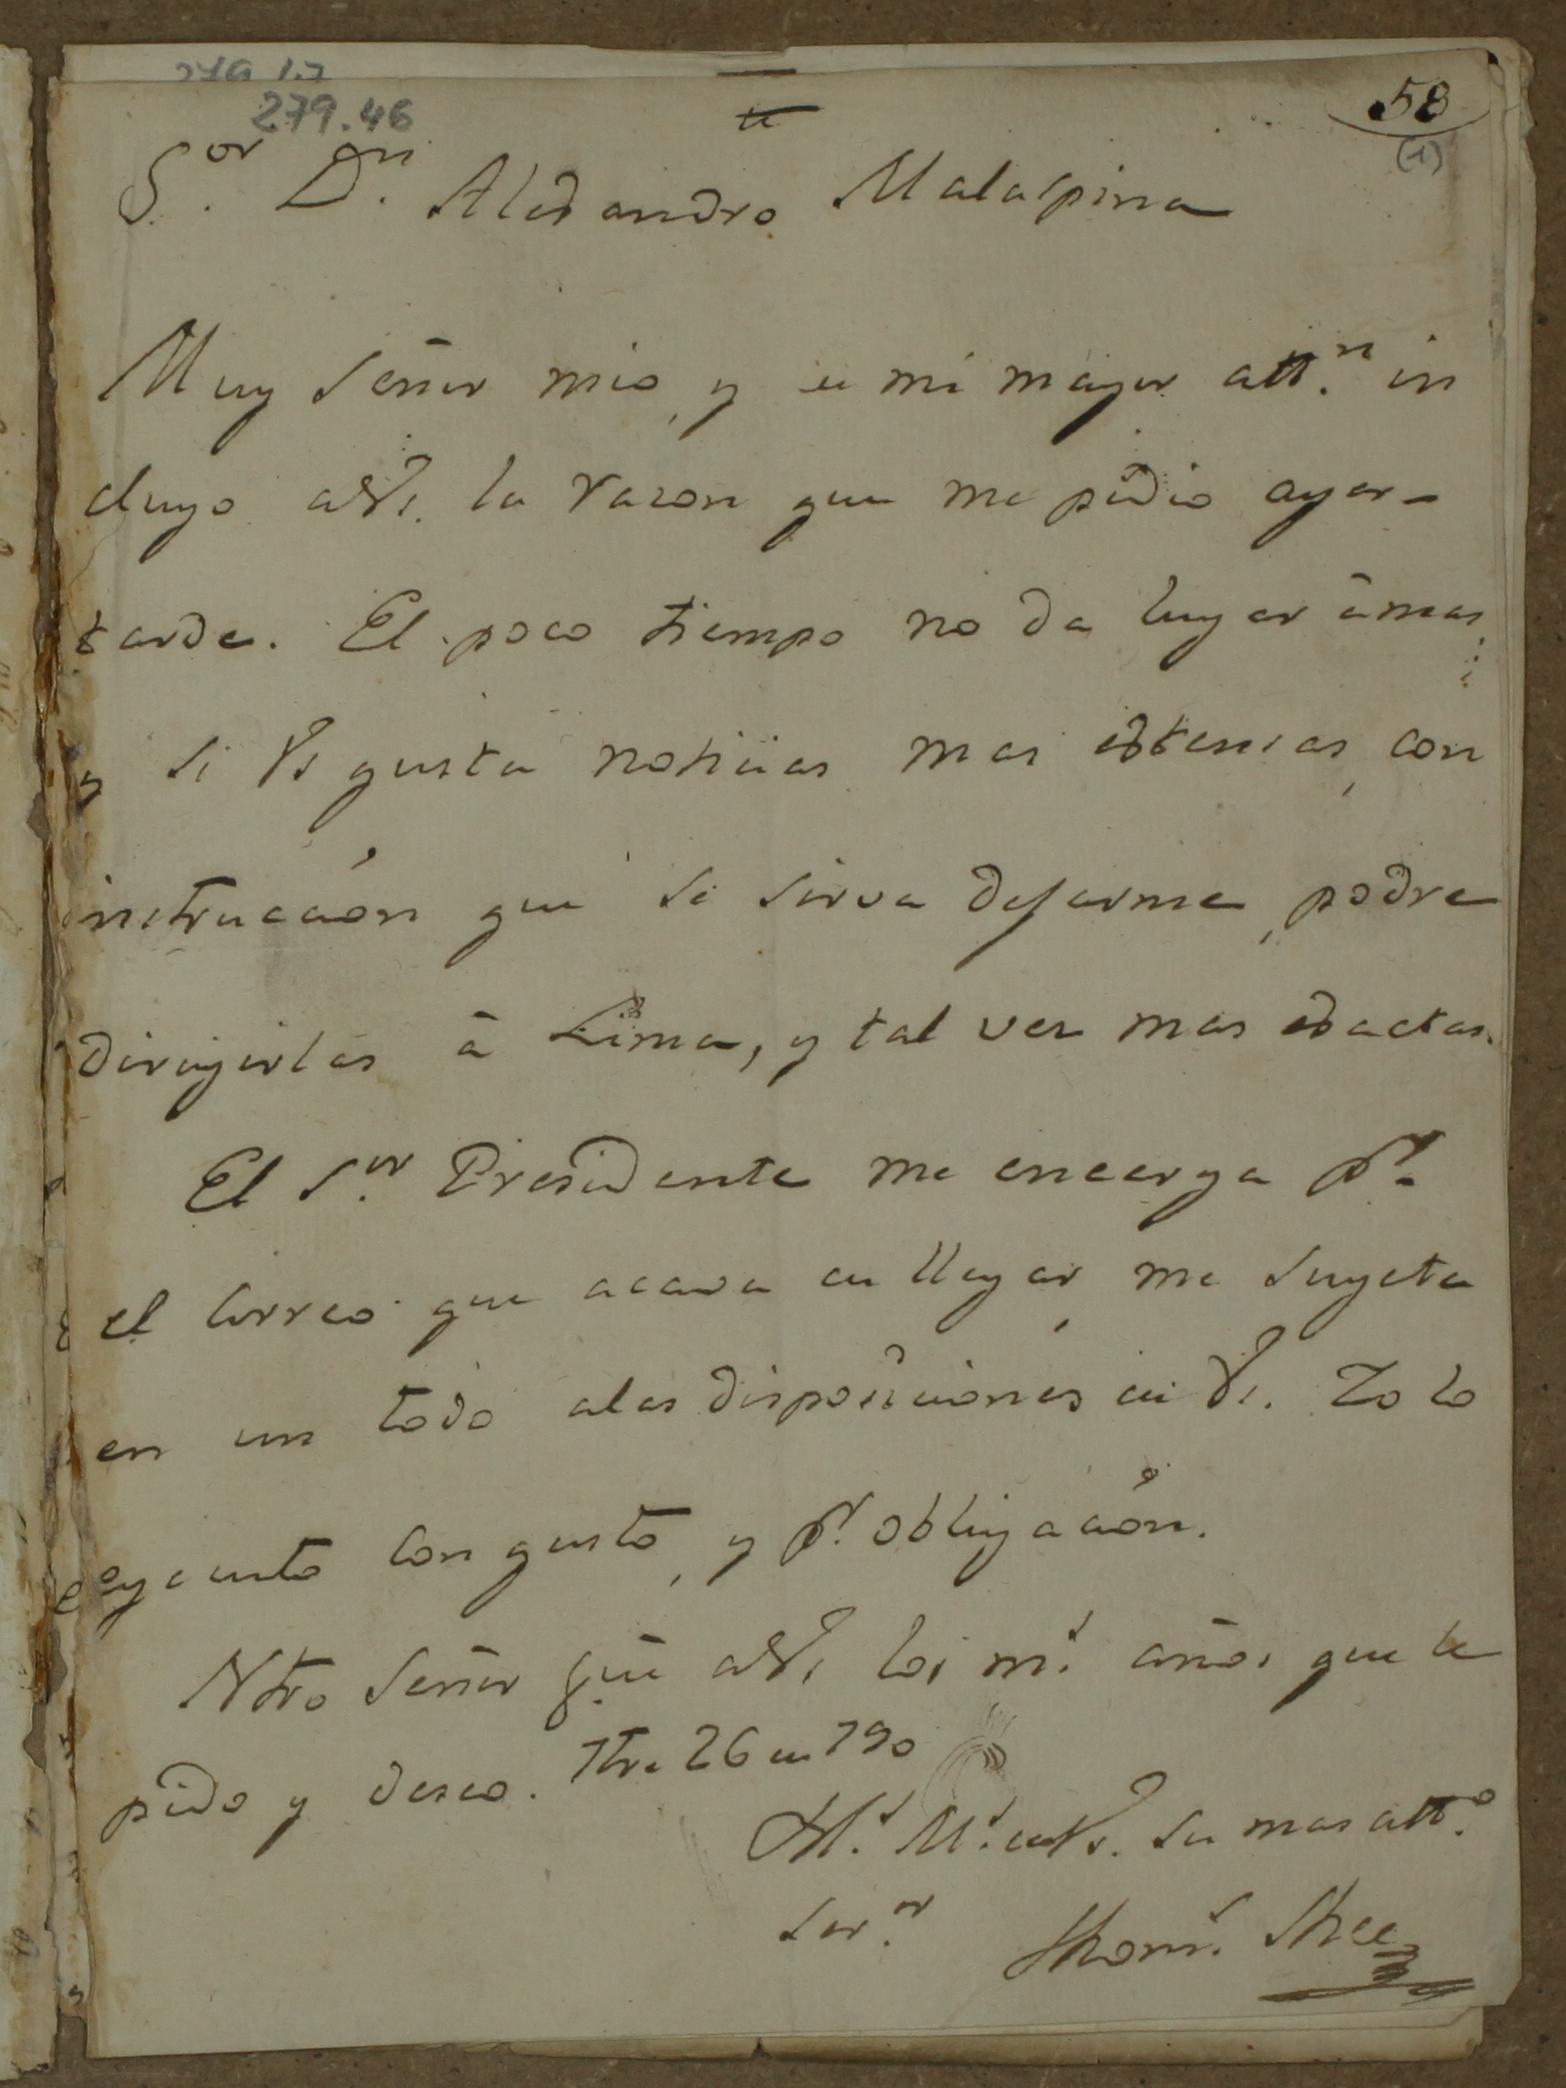 279.46
58
(1)
S.or D.n Alexandro Malaspina
Muy Señor mio, y de mi mayor att.n in
cluyo a VS. la razon que me pidio ayer-
tarde. El poco tiempo no da lugar à mas,
y si VS gusta noticias mas extensas, con
instruccion que se sirva dejarme, podre
dirigirlas à Lima, y tal vez mas exactas.
El S.or Presidente me encarga p.r
el Correo que acava de llegar, me sugete
en un todo a las disposiciones de VS. Yo lo
egecuto con gusto, y p.r obligacion.
Ntro Señor gue a VS los m.s años que le
pido y deseo. 7bre 26 de 790
B.l M. de VS. su mas att.o
Ser.or Thom.s Shee